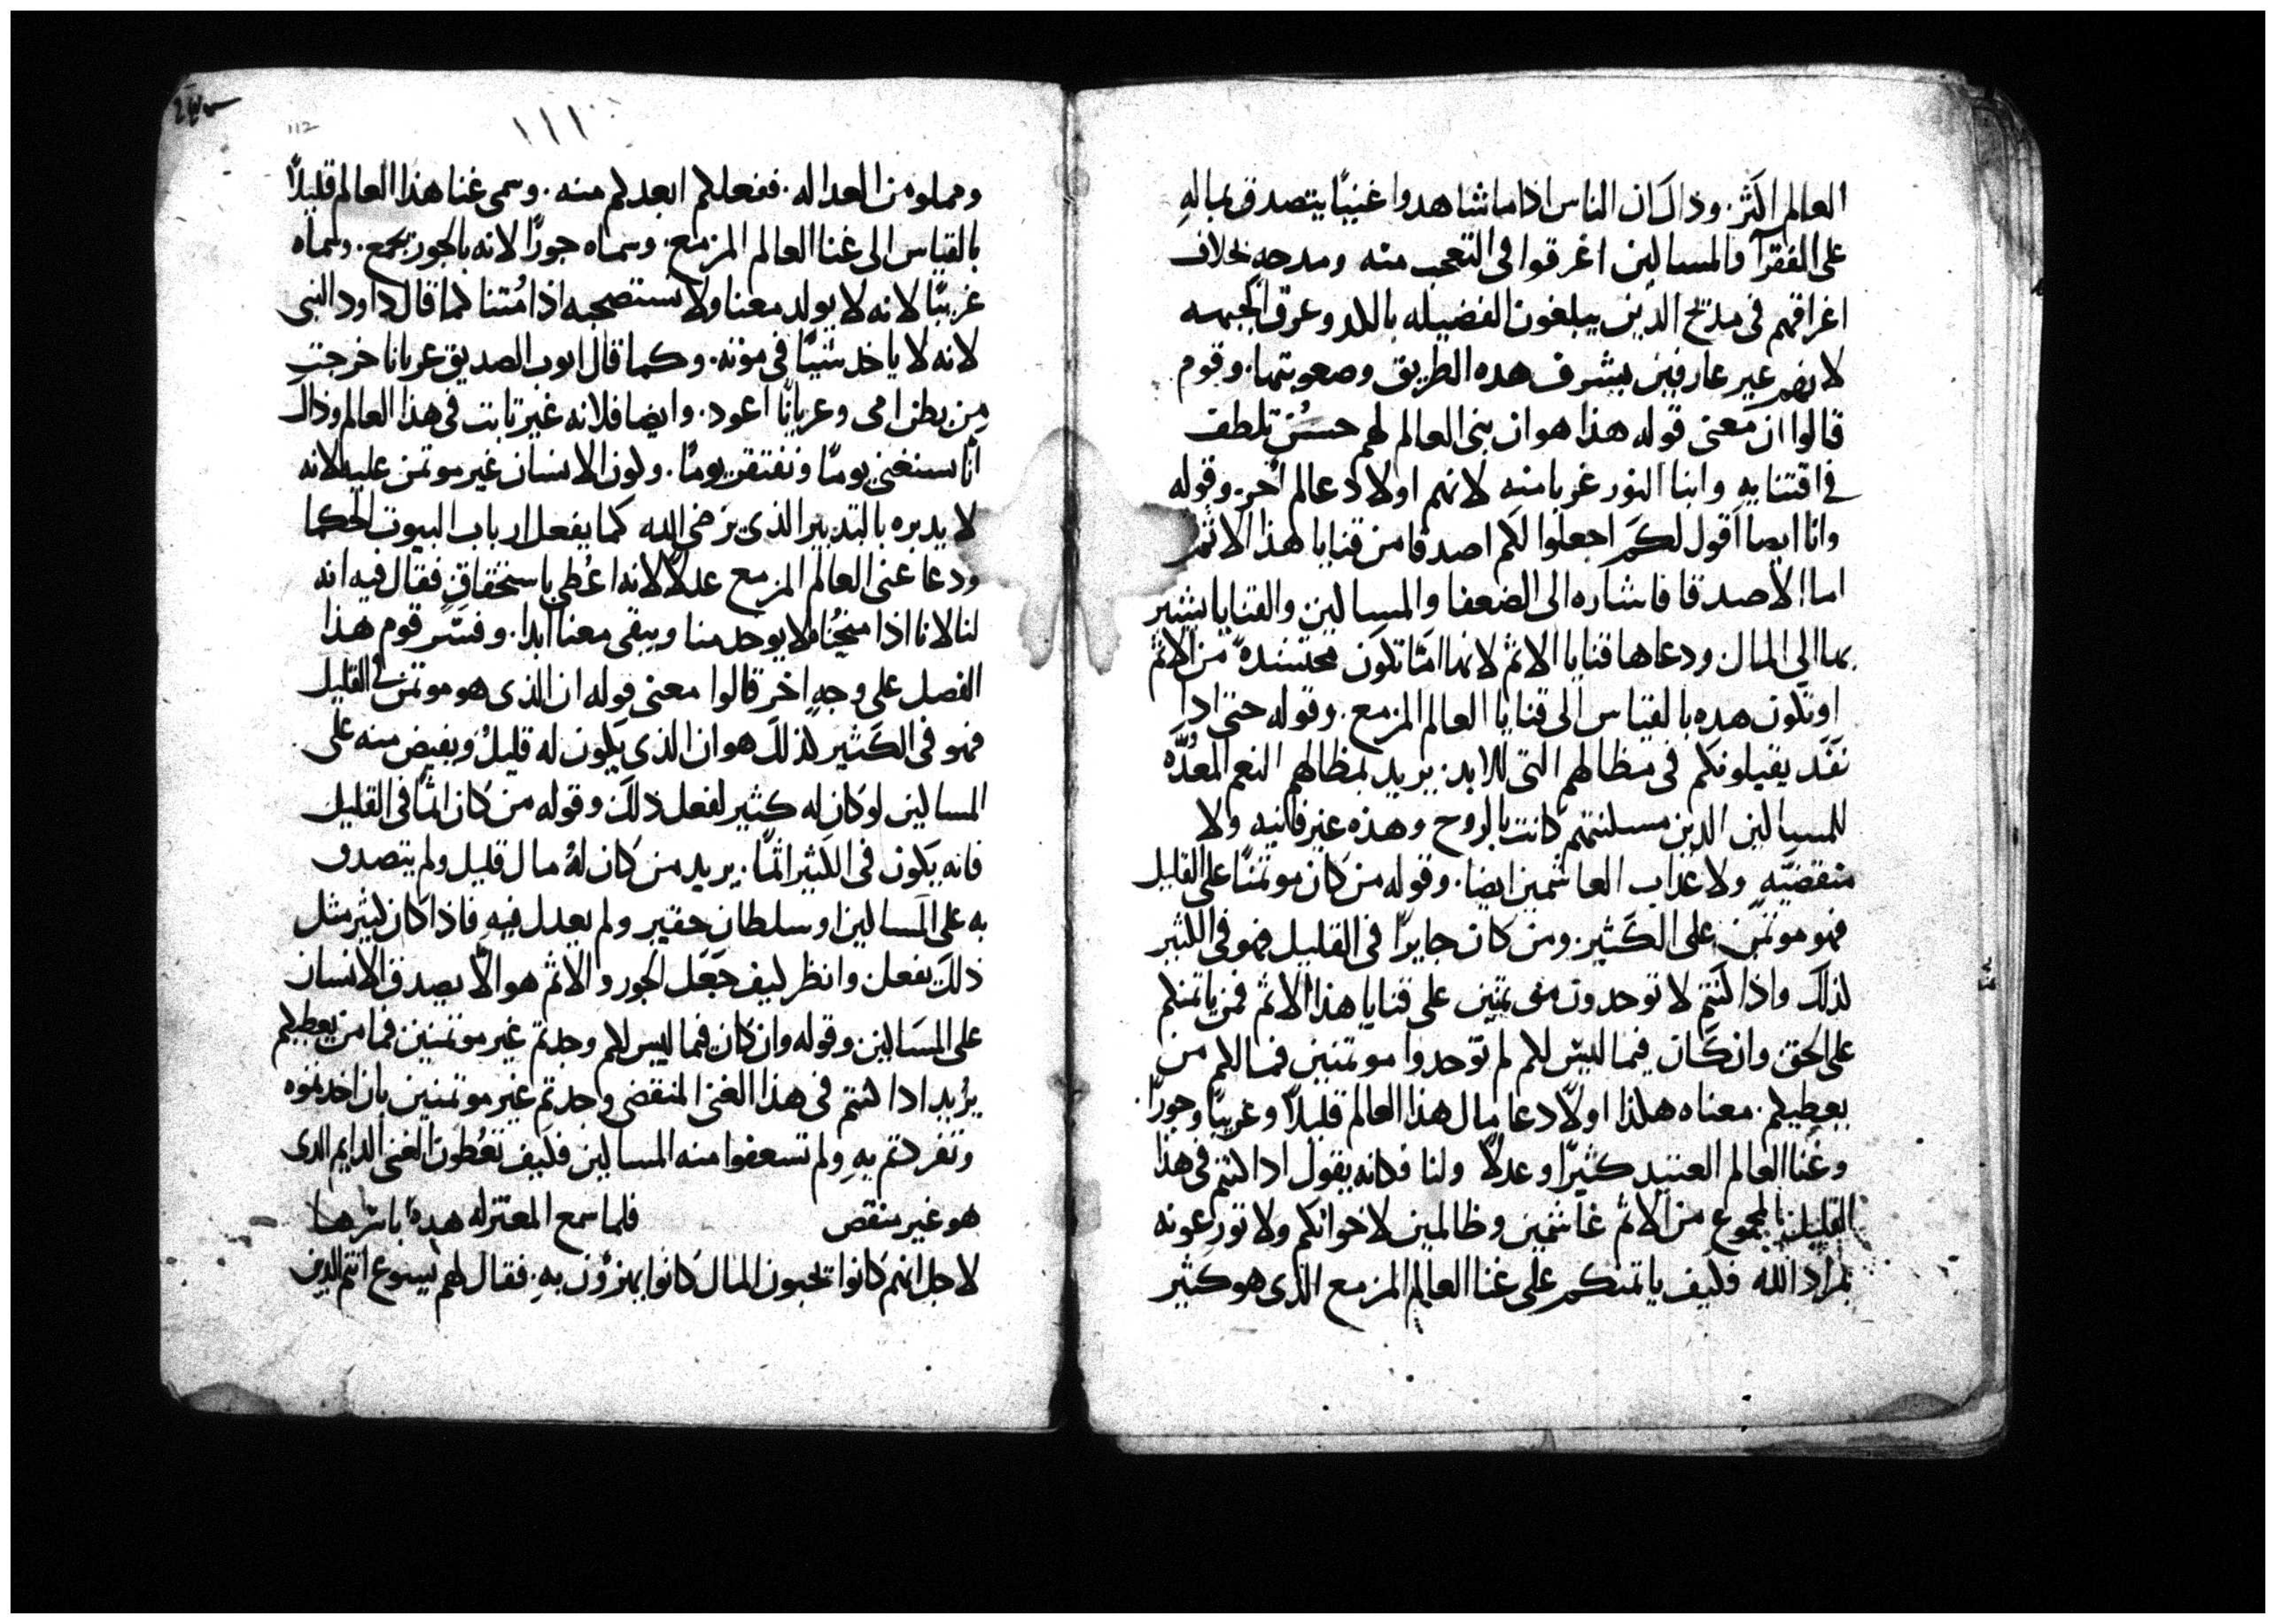 العالم اكثر. وذاك ان الناس اذا ما شاهدوا غنيًا يتصدق بماله
على الفقرآ والمساكين اغرقوا في التعجب منه ومدحه بخلاف
اغراقهم في مديح الذين يبلغون الفضيله بالكد وعرق الجبهه
لانهم غير عارفين بشرف هذه الطريق وصعوبتها. وقوم
قالوا ان معنى قوله هذا هو ان بني العالم لهم حسن تلطف
في اقتنايه وابنا النور غربا منه لانهم اولاد عالم اخر. وقوله
وانا ايضا اقول لكم اجعلوا لكم اصدقا من قنايا هذا الاثم
اما الاصدقا فاشاره الى الضعفا والمساكين والقنايا يشير
بها الى المال ودعاها قنايا الاثم لانها امّا تكون محتشدة من الاثم
او تكون هذه بالقياس الى قنايا العالم المزمع. وقوله حتى اذا
نفد يقبلونكم في مظالهم التي للابد. يريد بمظالهم النعم المعدّه
للمساكين الدين مسكنتهم كانت بالروح وهذه غير فانيه ولا
منقضيّه ولا عذاب الغاشمين ايضا. وقوله من كان موتمنًا على القليل
فهو موتمن على الكثير. ومن كان جايرًا في القليل فهو في الكثير
كذلك واذا كنتم لا توجدون موتمنين على قنايا هذا الاثم فمن ياتمنكم
على الحق وان كان فيما ليس لكم لم توجدوا موتمنين فما لكم من
يعطيكم. معناه هكذا اولاً دعا مال هذا العالم قليلاً وغريبًا وجورًا.
وغنا العالم العتيد كثيرًا وعدلاً ولنا فكانه يقول اذا كنتم في هذا
القليل المجموع من الاثم غاشمين وظالمين لاخوانكم ولا توزعونه
بمراد الله فكيف ياتمنكم على غنا العالم المزمع الذي هو كثير
١١١
112
ومملوه من العداله. ففعلكم ابعدكم منه. وسمى غنا هذا العالم قليلاً
بالقياس الى غنا العالم المزمع. وسماه جورًا لانه بالجور يجمع. وسماه
غريبًا لانه لا يولد معنا ولا نستصحبه اذا مُتنا كما قال داود النبي
لانه لا ياخد شيًا في موته. وكما قال ايوب الصديق عريانا خرجت
من بطن امي وعريانًا اعود. وايضا فلانه غير ثابت في هذا العالم وذاك
انّا نستغني يومًا ونفتقر يومًا. ولون الانسان غير موتمن عليه لانه
لا يدبره بالتدبير الذي يرضي الله كما يفعل ارباب البيوت الحكما
ودعا غنى العالم المزمع عدلاً لانه اعُطي باستحقاق فقال فيه انه
لنا لانا اذا منحناه لا يوخد منا ويبقى معنا ابدا. وفسّر قوم هذا
الفصل على وجهٍ اخر قالوا معنى قوله ان الذي هو موتمن في القليل
فهو في الكثير كذلك هو ان الذي يكون له قليلٌ ويفيض منه على
المساكين لو كان له كثير لفعل ذلك وقوله من كان اثمًا في القليل
فانه يكون في الكثير اثمًا. يريد من كان لهُ مال قليل ولم يتصدق
به على المساكين او سلطان حقير ولم يعدل فيه فاذا كان كثير مثل
ذلك يفعل وانظر كيف جعَل الجور والاثم هو الاّ يصدق الانسان
على المسَاكين وقوله وان كان فيما ليس لكم وجدتم غير موتمنين فما من يعطيكم
يُريد اذا كنتم في هذا الغنى المنقضي وجدتم غير موتمنين بان اخدتموه
وتفردتم به ولم تسعفوا منه المساكين فكيف تعُطون الغنى الدايم الدى
هو غير منقض فلما سمع المعتزله هده باسرها
لاجل انهم كانوا يحبون المال كانوا يهزؤن به. فقال لهم يسوع انتم الدين